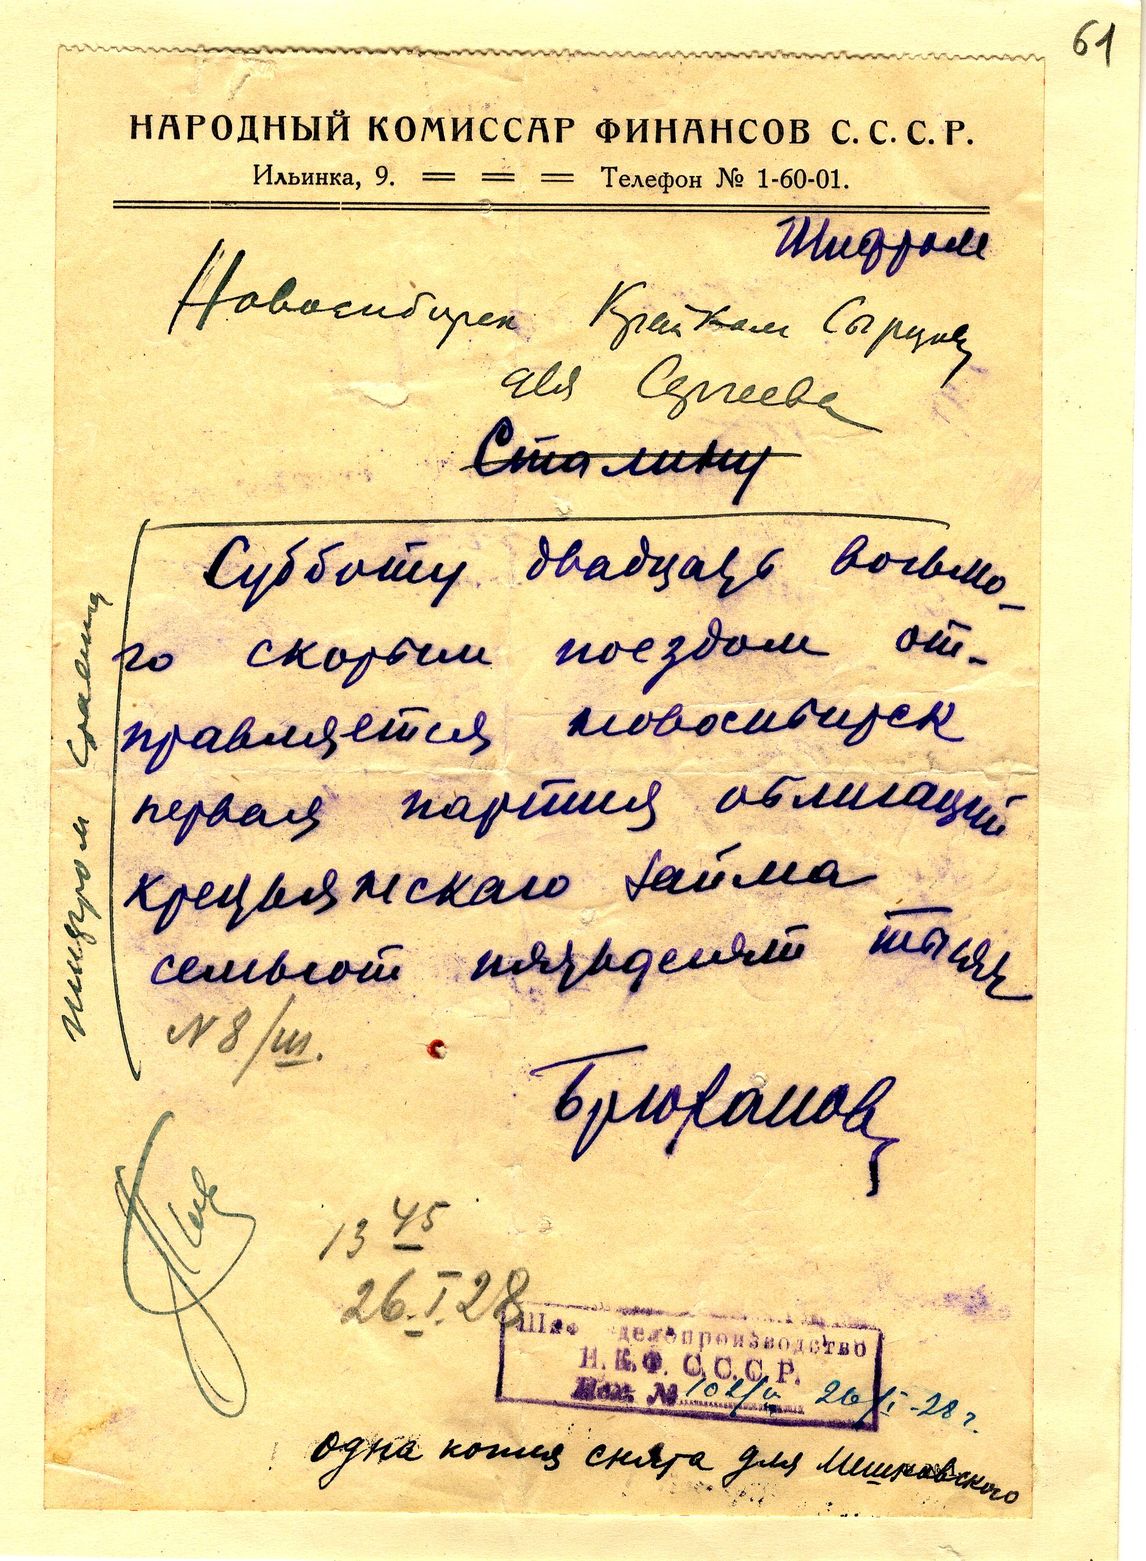 61
НАРОДНЫЙ КОМИССАР ФИНАНСОВ С. С. С. Р.
Ильинка, 9. = = = Телефон № 1-60-01.
Шифром
Новосибирск Крайком Сырцову
для Сергеева
Сталину
Субботу двадцать восьмо-
го скорым поездом от-
правляется новосибирск
первая партия облигаций
крестьянскаго займа
семьсот пятьдесят тысяч
N 8/III.
Брюханов
Шифром
13 45
26.I.28
Шиф делопроизводство
Н.К.Ф. С.С.С.Р.
Исх. № 102/ш 26/I-28 г.
одна копия снята для Мешковского